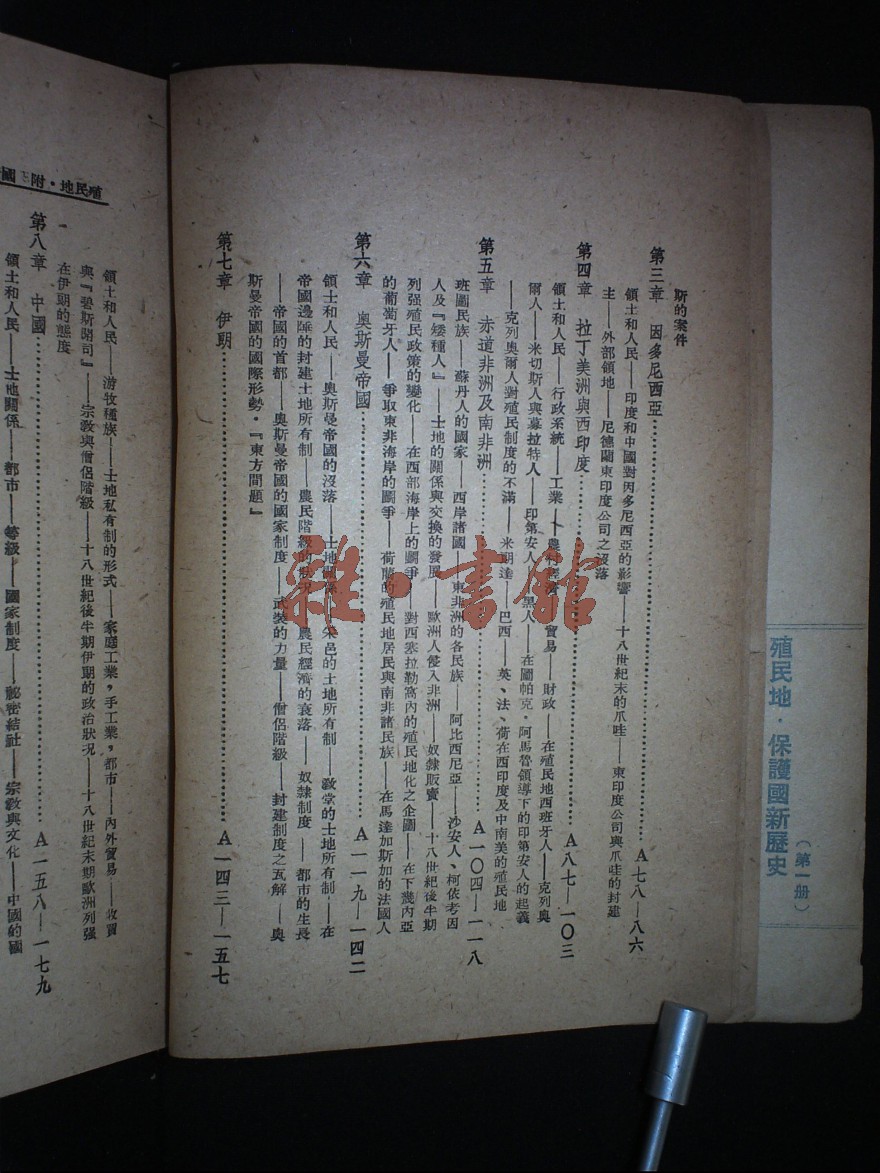 殖民地·保護國新歷史
（第一册）
斯的案件
第三章 因多尼西亞 A 七八—八六
領土和人民——印度和中國對因多尼西亞的影響——十八世紀末的爪哇——東印度公司與爪哇的封建
主——外部領地——尼德蘭東印度公司之沒落
第四章 拉丁美洲與西印度 A 八七—一〇三
領土和人民——行政系統——工業——農村經濟——貿易——財政——在殖民地西班牙人——克列奥
爾人——米切斯人與慕拉特人——印第安人——黑人——在圖帕克·阿馬魯領導下的印第安人的起義
——克列奧爾人對殖民制度的不滿——米朗達——巴西——英、法、荷在西印度及中南美的殖民地
第五章 赤道非洲及南非洲 A 一〇四—一一八
班圖民族——蘇丹人的國家——西岸諸國——東非洲的各民族——阿比西尼亞——沙安人、柯依考因
人及『矮種人』——土地的關係與交換的發展——歐洲人侵入非洲——奴隸販賣——十八世紀後半期
列强殖民政策的變化——在西部海岸上的鬭爭——對西塞拉勒窩內的殖民地化之企圖——在下幾內亞
的葡萄牙人——爭取東非海岸的鬭爭——荷蘭的殖民地居民與南非諸民族——在馬達加斯加的法國人
第六章 奧斯曼帝國 A 一一九—一四二
領士和人民——奧斯曼帝國的沒落——土地關係——采邑的土地所有制——教堂的土地所有制——在
帝國邊陲的封建土地所有制——農民階級的狀況——農民經濟的衰落——奴隸制度——都市的生長
——帝國的首都——奧斯曼帝國的國家制度——武裝的力量——僧侶階級——封建制度之瓦解——奧
斯曼帝國的國際形勢·『東方問題』
第七章 伊朗 A 一四三—一五七
殖民地·附 國
領土和人民——游牧種族——土地私有制的形式——家庭工業，手工業，都市——內外貿易——收買
與『碧斯開司』——宗教與僧侶階級——十八世紀後半期伊朗的政治狀況——十八世紀末期歐洲列强
在伊朗的態度
第八章 中國 A 一五八—一七九
領土和人民——土地關係——都市——等級——國家制度——祕密結社——宗教與文化——中國的國
雜·書館